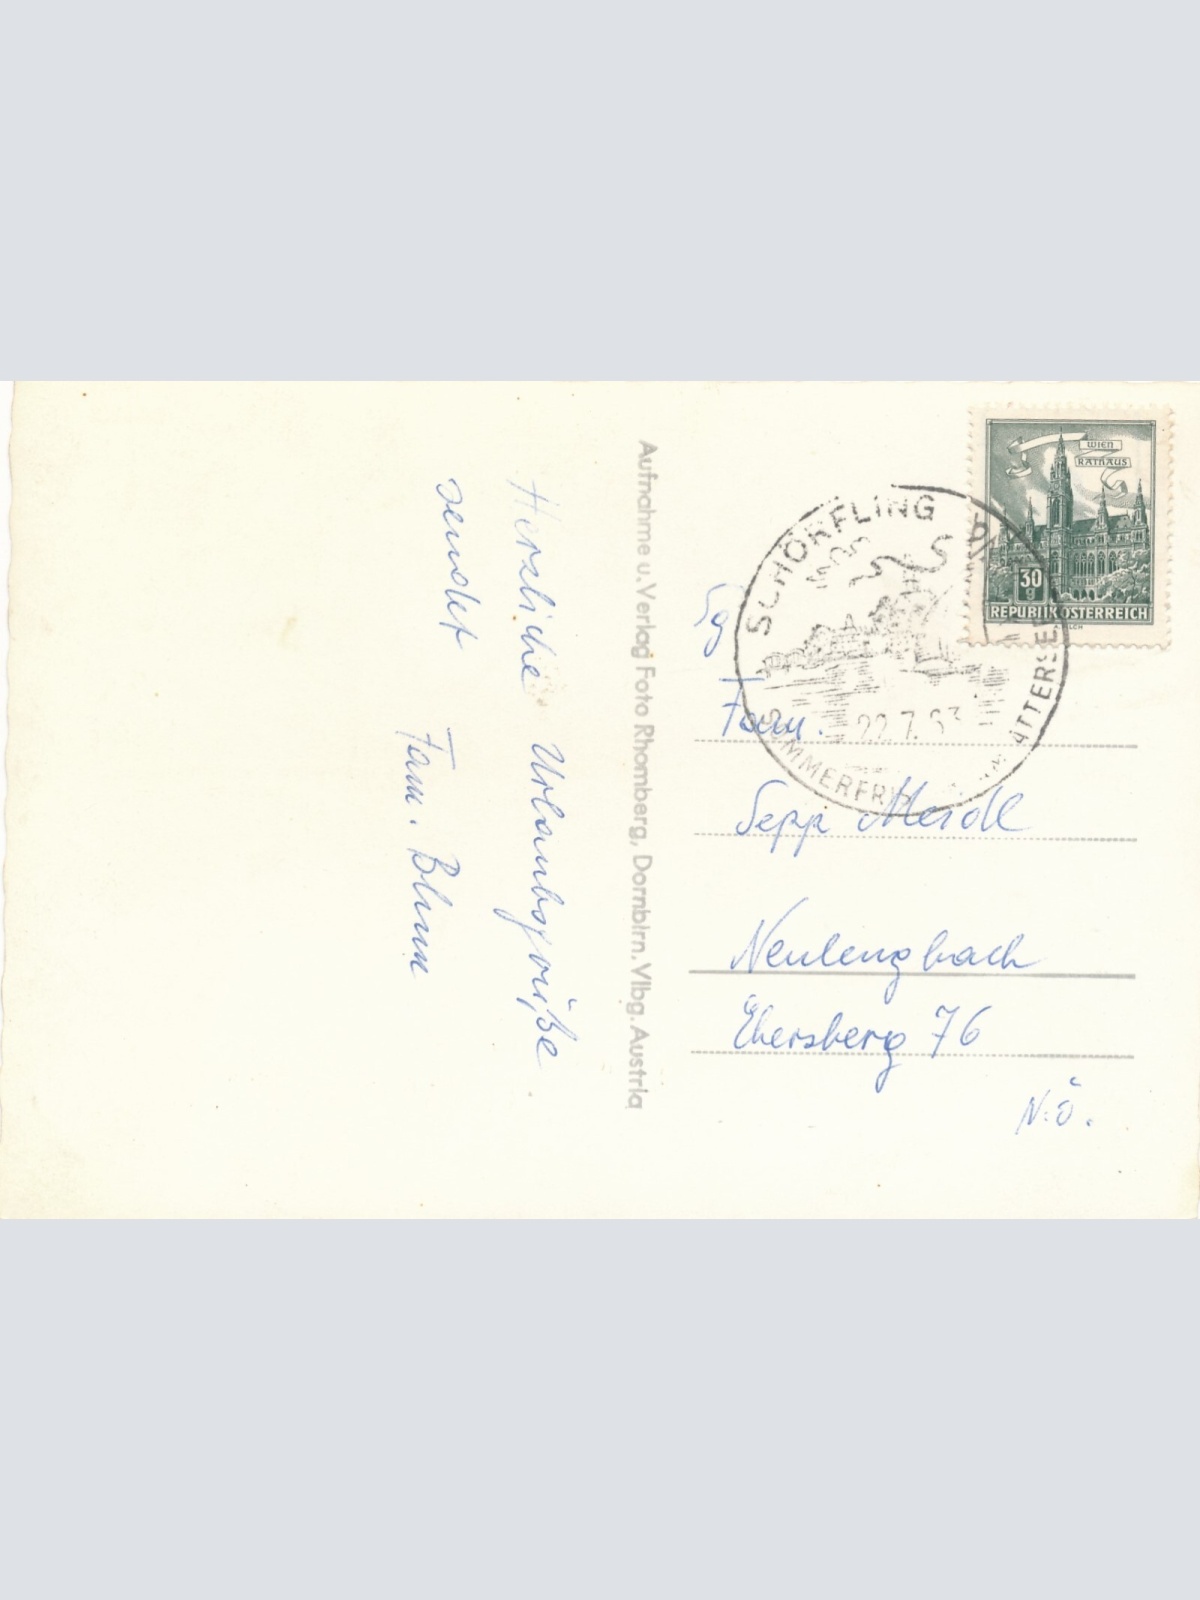 Herzliche Urlaubsgrüße
sendet
Fam. Blum
Aufnahme u. Verlag Foto Rhomberg, Dornbirn. Vlbg. Austria
WIEN
RATHAUS
30
g
REPUBLIK ÖSTERREICH
SCHÖRFLING
22.7.63
ATTERSEE
Fam.
Sepp Meidl
Neulengbach
Ebersberg 76
N.Ö.